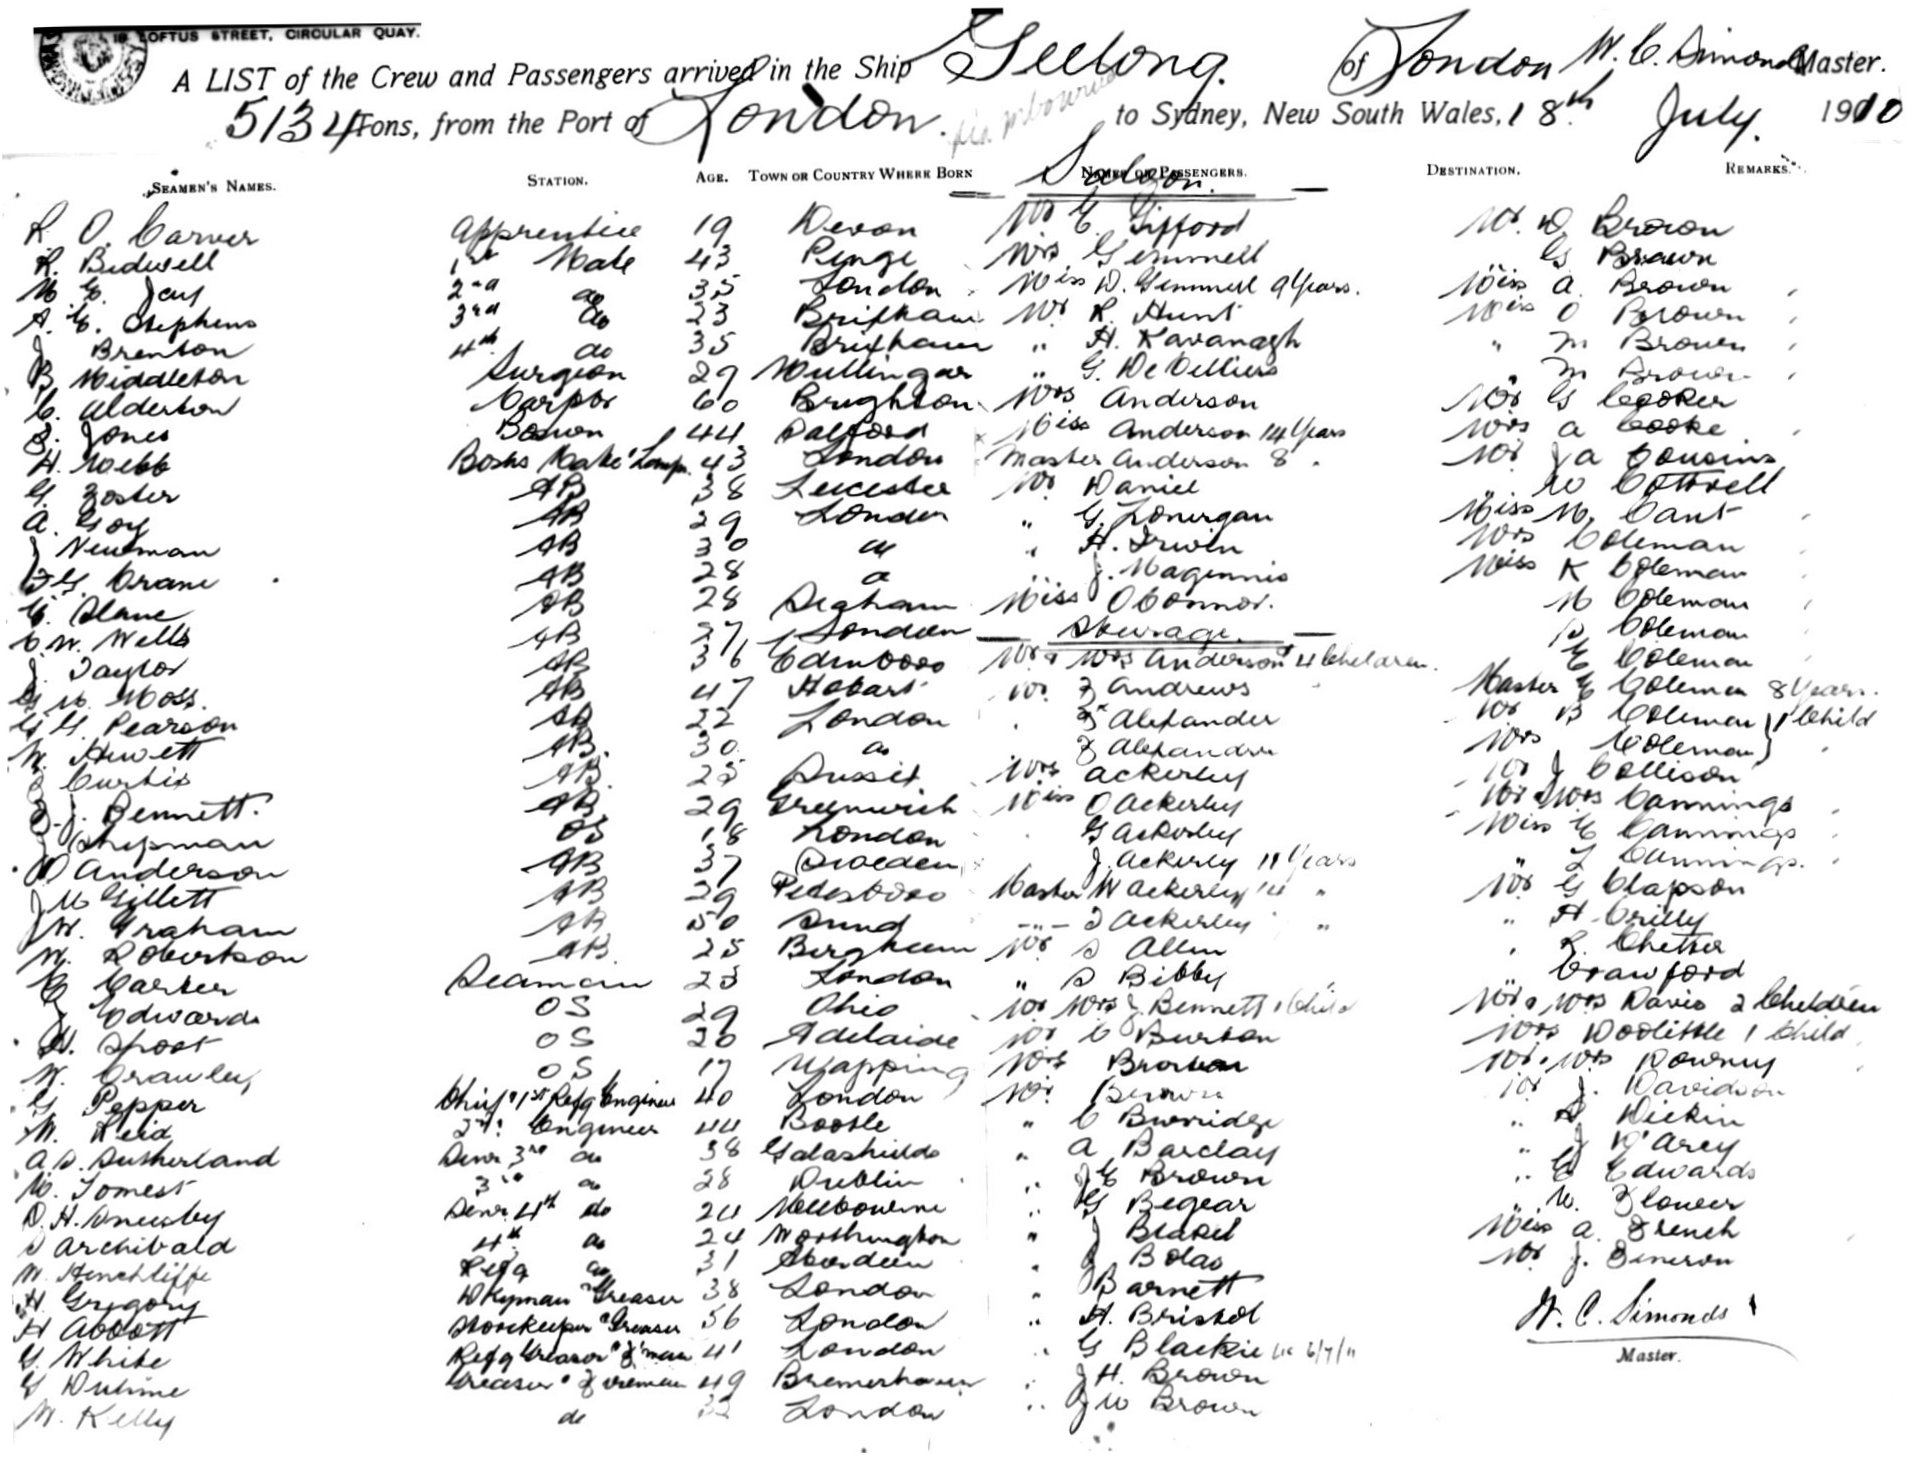 18 LOFTUS STREET, CIRCULAR QUAY.
A LIST of the Crew and Passengers arrived in the Ship Geelong. of London W. C. Simonds Master.
5134 Tons, from the Port of London. via Melbourne to Sydney, New South Wales, 18th July. 1910
SEAMEN'S NAMES. STATION. AGE. TOWN OR COUNTRY WHERE BORN NAMES OF PASSENGERS. DESTINATION. REMARKS.
Saloon.
R. O. Carver Apprentice 19 Devon Mr E. Gifford Mr. D. Brown
R. Bidwell 1st Mate 43 Penge Mrs Gemmell G Brown
M E. Jay 2nd do 35 London Miss D. Gemmell 9 Years. Miss A. Brown
A. E. Stephens 3rd do 23 Brixham Mr R. Hunt Miss O Brown
J Brenton 4th do 35 Brixham " H. Kavanagh " M Brown
B. Middleton Surgeon 29 Mullingar " G. De Velliers " M Brown
C. Alderton Carptr 60 Brighton Mrs Anderson Mr G Cooker
J. Jones Boswn 44 Salford Miss Anderson 14 Years Mrs A Cooke
H. Webb Bosns Mate Lamps. 43 London Master Anderson 8 " Mr J A Cousins
G. Foster AB 38 Leicester Mr Daniel " W Cottrell
A. Goy AB 29 London " G. Lonergan Miss M. Cant
J Newman AB 30 do " H. Irwin Mrs Coleman
F G. Crane AB 28 do " J. Maginnis Miss K Coleman
E. Slane AB 28 Miss O'Connor. M Coleman
C. W. Wells AB 27 London Steerage. Coleman
J. Taylor AB 36 Edinboro Mr & Mrs Anderson 4 Children. E Coleman
G M. Moss. AB 47 Hobart Mr. F Andrews Master E Coleman 8 Years.
G G. Pearson AB 22 London " F Alexander Mr B Coleman } 1 Child
W. Hewett AB. 30 do F Alexander Mrs Coleman }
Curtis AB. 25 Sussex Mrs Ackerley Mr J Collison
J. Bennett. AB 29 Greenwich Miss O Ackerley Mr & Mrs Cannings
J Shipman OS 18 London G Ackerley Miss E Cannings
D Anderson AB 37 Sweden J. Ackerley 11 Years " L Cannings.
J M Gillett AB 29 Peterboro Master W Ackerley " Mr G Clapson
J W. Graham AB 50 Sund " Ackerley " " H Crilly
W. Robertson AB. 25 Mr S Allen " R.
C Carter Seaman 23 London " S Bibby " Crawford
J Edwards OS 29 Ohio Mr Mrs J. Bennett 1 Child Mr & Mrs Davis 2 Children
H. OS 20 Adelaide Mr C Burton Mrs Doolittle 1 Child
W. Crawley OS 17 Wapping Mrs Mr & Mrs Downey
G Pepper Chief & 1st Refg Engineer 40 London Mr. Brown Mr J. Davidson
W. Reid 2nd Engineer 44 Bootle " C Burridge " Dickin
A. S. Sutherland Senr 3rd do 38 Galashields " A Barclay " J D'Arcy
3rd do 28 Dublin " J E Brown " E Edwards
D. H. Senr. 4th do 24 Melbourne " G Begear " W. Flower
S Archibald 4th do 24 Worthington " J Blakel Miss A. French
W. Hinchliffe Refg do 31 Aberdeen " J Bolas Mr J.
H. Gregory Dkyman Greaser 38 London " Barnett
H Abbott Storekeeper Greaser 56 London " H. Bristol W. C. Simonds
G. White Refg Greaser & F'man 41 London " G Blackie 6/7/11 Master.
G Duhme Greaser & Fireman 49 Bremerhaven " J H. Brown
W. Kelly do London " J W Brown